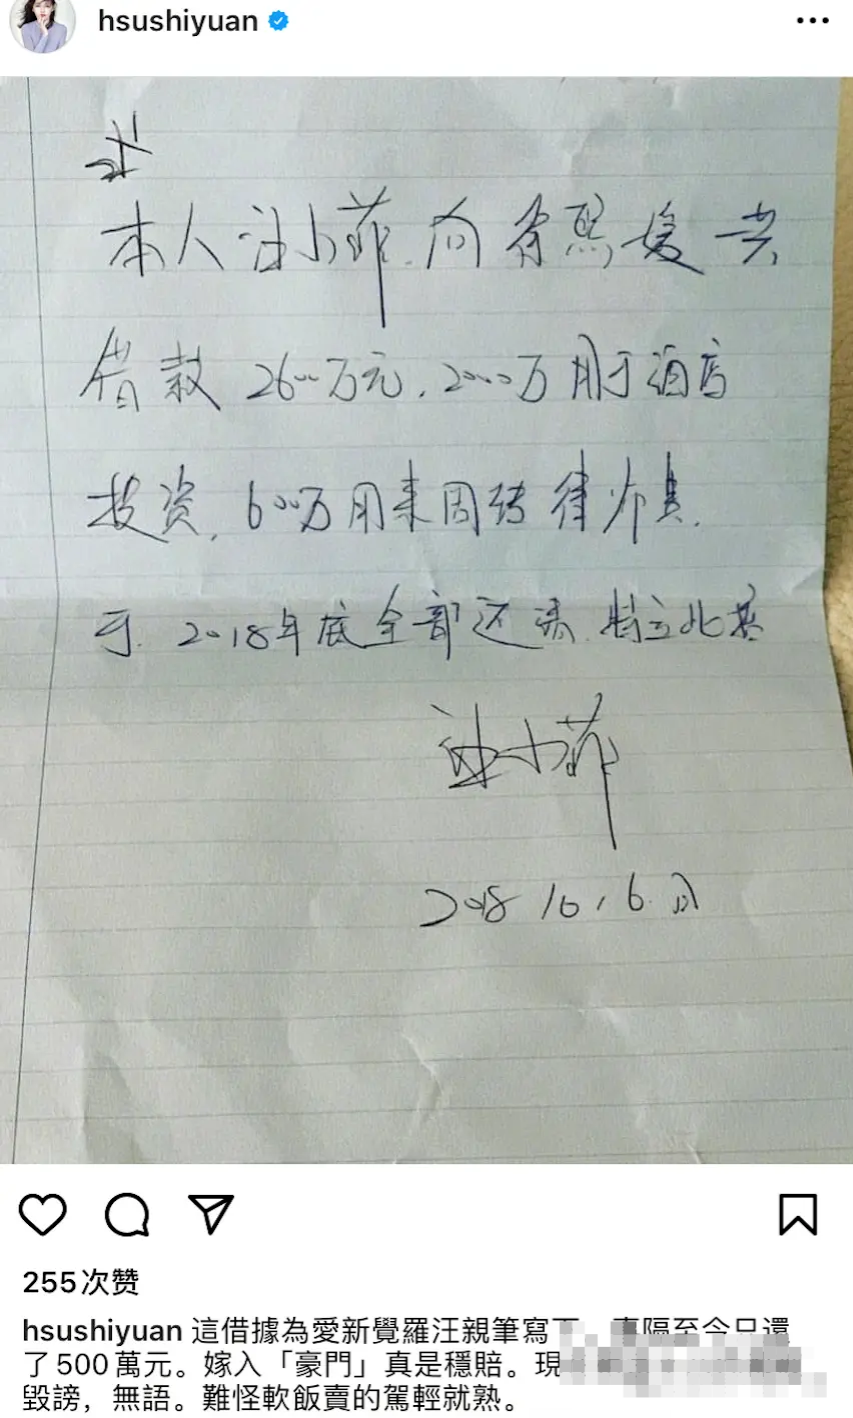 hsushiyuan
本人汪小菲.向徐熙媛共
借款2600万元.2000万用于酒店
投资.600万用来周转律师费.
于.2018年底全部还清.特立此
汪小菲
2018 10.6.
255次赞
hsushiyuan 這借據為愛新覺羅汪親筆寫 事隔至今只還
了500萬元。嫁入「豪門」真是穩賠。現
毀謗，無語。難怪軟飯賣的駕輕就熟。